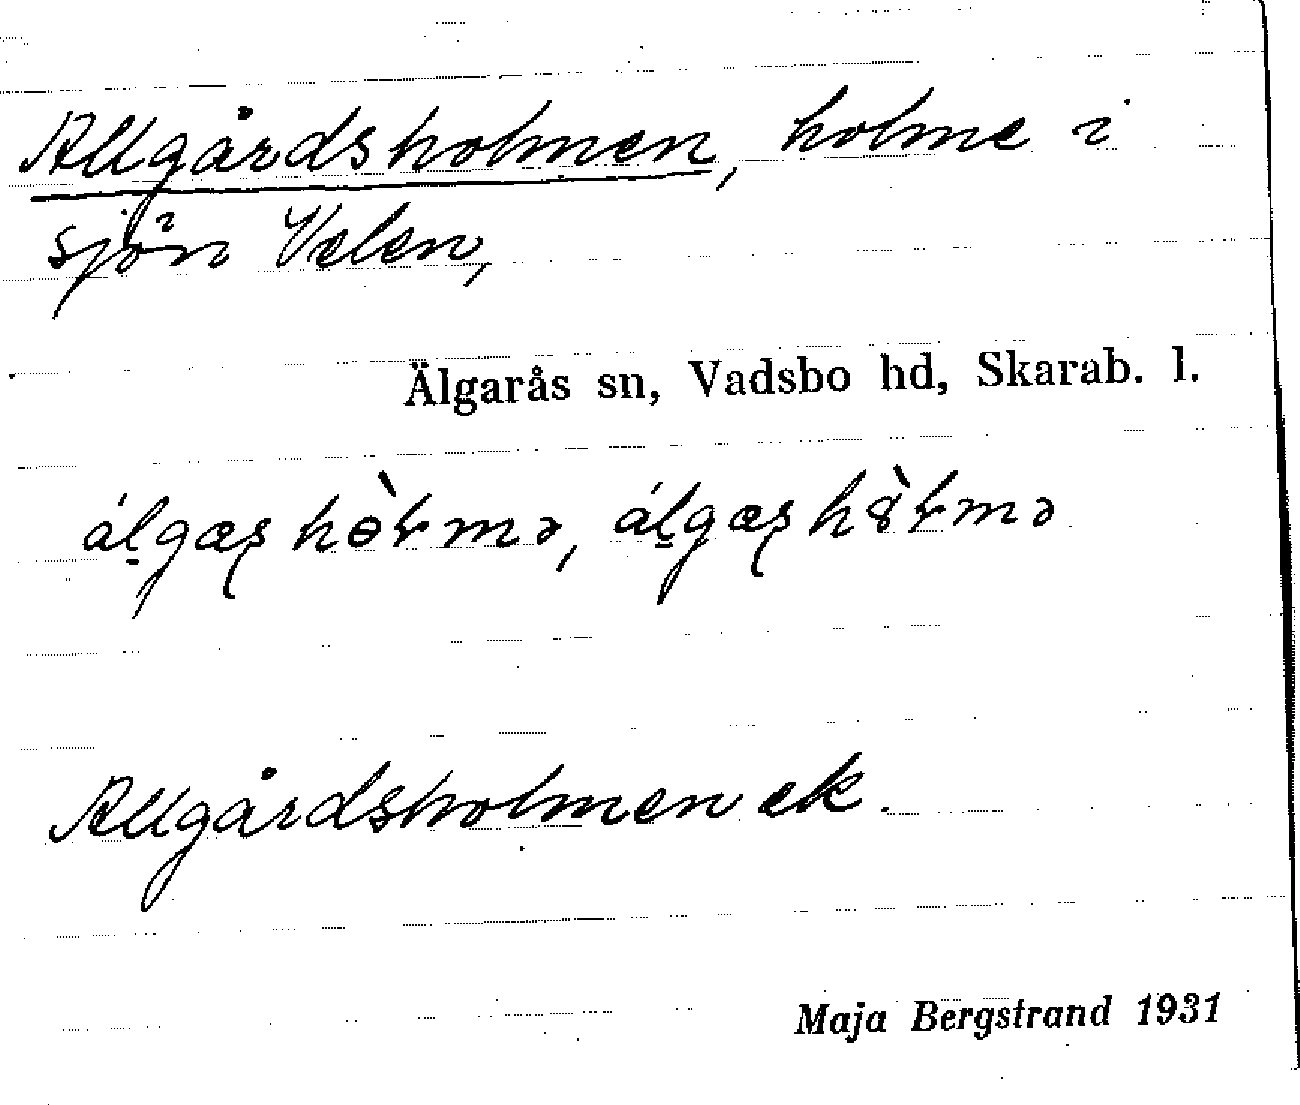 Allgårdsholmen, holme i
sjön Velen,
Älgarås sn, Vadsbo hd, Skarab. l.
Allgårdsholmen ek.
Maja Bergstrand 1931